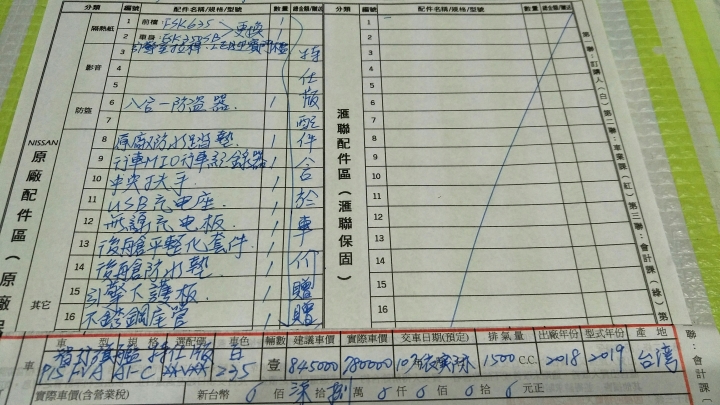 分類 編號 配件名稱/規格/型號 數量 總金額/贈送 分類 編號 配件名稱/規格/型號 數量 總金額/贈送
隔熱紙 1 前檔 FSK635 1 1
2 車身 更換 1 2
影音 3 3
4 4
5 5
防盜 6 八合一防盜器. 1 6
7 7
NISSAN原廠配件區(原廠
其它
8 原廠防水踏墊 1 8
9 行車MIO行車紀錄器 1 9
10 中央扶手 1 10
11 USB充電座 1 11
12 無線充電板. 1 12
13 後艙平整化套件. 1 13
14 後艙防水墊 1 14
15 引擎下護板. 1 15
16 不銹鋼尾管 1 16
特仕版配件含於車價贈
滙聯配件區(滙聯保固)
第一聯:訂購人(白)第二聯:車業課(紅)第三聯:會計課(綠)第
車 車型 規格 選配碼 車色 輛數 建議車價 實際車價 交車日期(預定) 排氣量 出廠年份 型式年份 產地
旗艦 特仕版 白 壹 845000 780000 1500 C.C. 2018 2019 台灣
235
實際車價(含營業稅) 新台幣 佰 柒 拾 捌 萬 仟 佰 拾 元正
聯:會計課